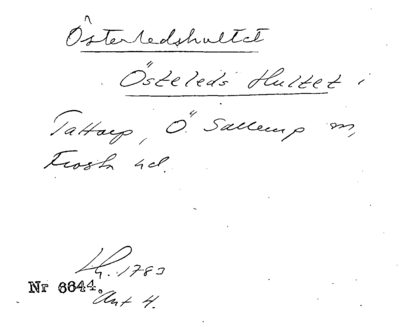 Österledshultet
Östeleds Hultet i
Tattarp, Ö. Sallerup sn,
Frosta hd.
Lh. 1783
Nr 6644.
Akt 4.